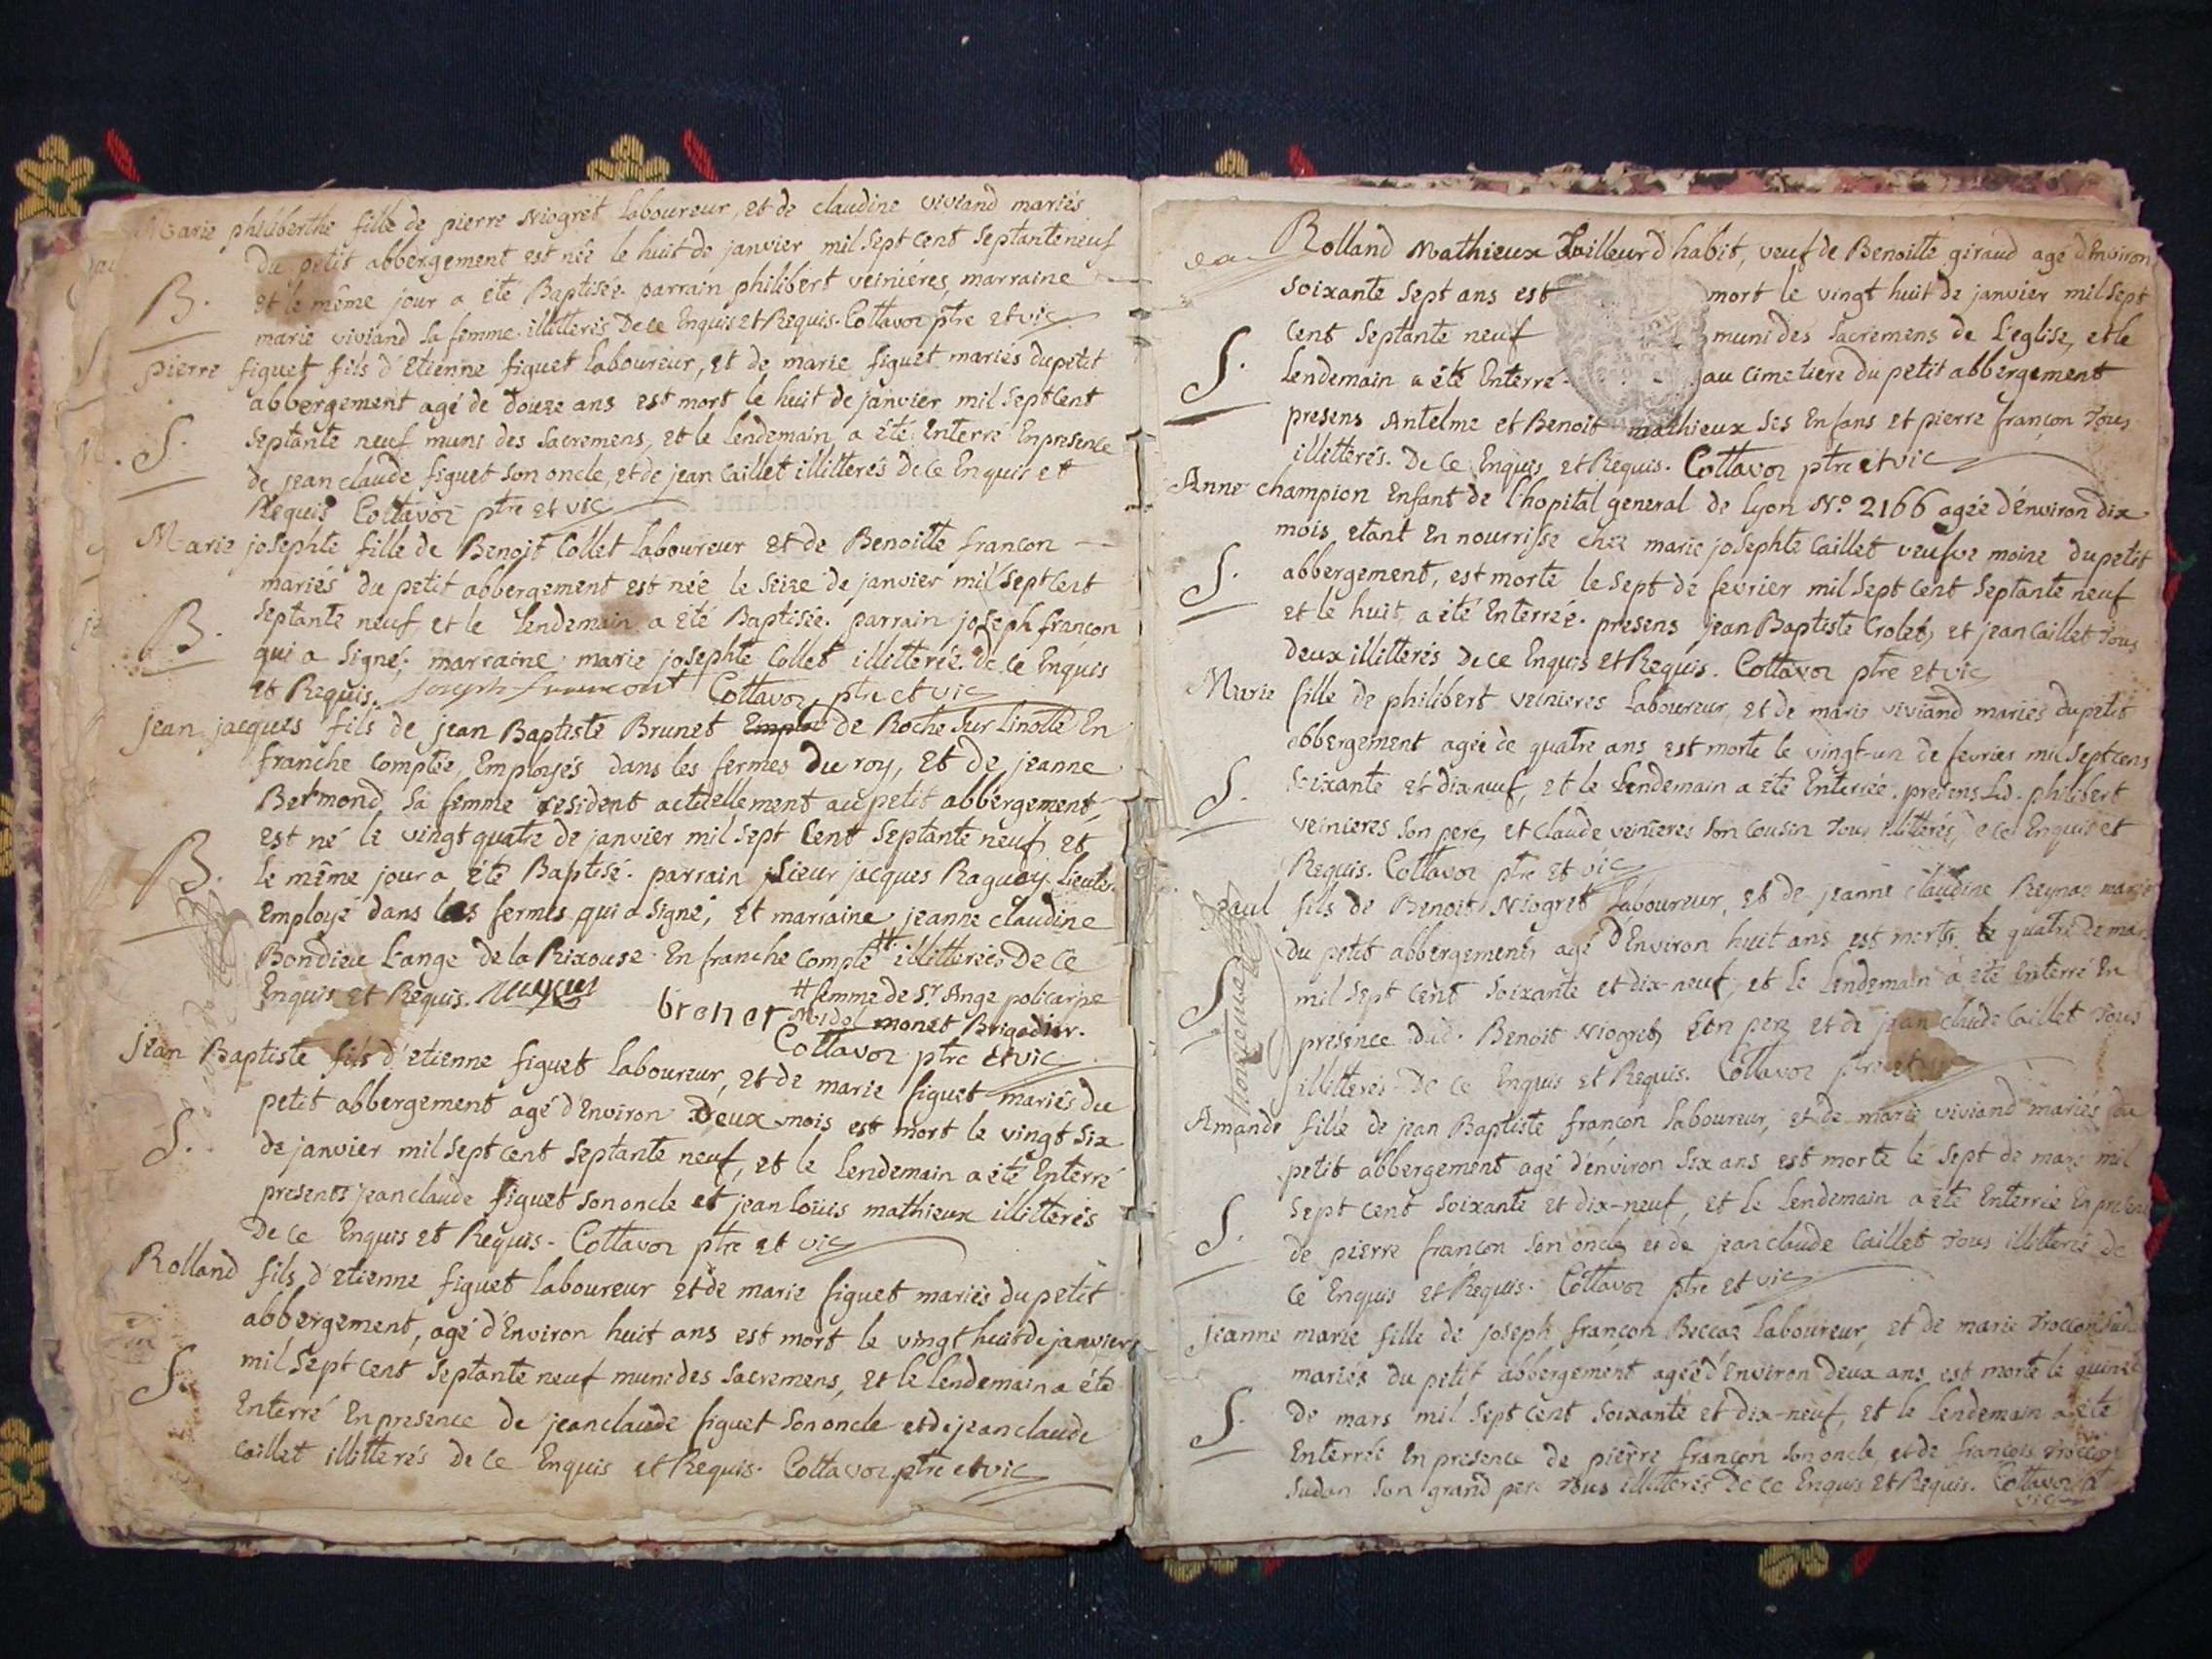 Marie philiberthe fille de pierre Niogret laboureur, et de claudine viviand mariés
du petit abbergement est née le huit de janvier mil sept cent septante neuf
B. et le même jour a été Baptisée. parrain philibert veiniéres, marraine
marie viviand sa femme. illitterés De ce Enquis et Requis. Cottavoz ptre et vic
pierre figuet fils d'Etienne figuet laboureur, et de marie figuet mariés du petit
abbergement agé de douze ans est mort le huit de janvier mil sept cent
S. septante neuf muni des sacremens, et le lendemain a été Enterré En presence
de jean claude figuet son oncle, et de jean caillet illitterés de ce Enquis et
Requis Cottavoz ptre et vic
Marie josephte fille de Benoit Collet laboureur et de Benoitte françon
mariés du petit abbergement est née le seize de janvier mil sept cent
B. septante neuf, et le lendemain a été Baptisée. parrain joseph françon
qui a signé; marraine marie josephte Collet illitterée. de ce Enquis
et Requis. joseph françont Cottavoz ptre et vic
jean jacques fils de jean Baptiste Brunet Emplo de Roche sur linotte En
franche comptée, Employés dans les fermes du roy, et de jeanne
Bermond sa femme resident actuellement au petit abbergement,
est né le vingt quatre de janvier mil sept cent septante neuf et
B. le même jour a été Baptisé. parrain sieur jacques Raguey lieuten
employé dans les fermes, qui a signé; et marraine jeanne claudine
Bondieu L'ange de la Rixouse En franche compté # illitterés De ce
Enquis et Requis.
brener # femme de Sr Ange policarpe
monet Brigadier.
Cottavoz ptre et vic
jean Baptiste fils d'etienne figuet laboureur, et de marie figuet mariés du
petit abbergement agé d'Environ Deux mois est mort le vingt six
S. de janvier mil sept cent septante neuf, et le lendemain a été Enterré
presents jean claude figuet son oncle et jean louis mathieux illitterés
de ce Enquis et Requis. Cottavoz ptre et vic
Rolland fils d'etienne figuet laboureur et de marie figuet mariés du petit
abbergement, agé d'Environ huit ans est mort le vingt huit de janvier
S. mil sept cent septante neuf muni des sacremens, et le lendemain a été
Enterré En presence de jean claude figuet son oncle et de jean claude
caillet illitterés de ce Enquis et Requis. Cottavoz ptre et vic
Rolland Mathieux Tailleur d'habit, veuf de Benoitte giraud agé d'Environ
soixante sept ans est mort le vingt huit de janvier mil sept
S. cent septante neuf muni des sacremens de l'eglise, et le
lendemain a été Enterré au cimetiere du petit abbergement
presens Antelme et Benoit mathieux ses Enfans et pierre françon Tous
illitterés. De ce Enquis et Requis. Cottavoz ptre et vic
Anne champion Enfant de l'hopital general de lyon No 2166 agée d'environ dix
mois etant En nourrisse chez marie josephte caillet veufve moine du petit
S. abbergement, est morte le sept de fevrier mil sept cent septante neuf
et le huit, a été Enterrée. presens jean Baptiste Crolet, et jean caillet Tous
deux illitterés de ce Enquis et Requis. Cottavoz ptre et vic
Marie fille de philibert veinieres laboureur, et de marie viviand mariés du petit
abbergement agée de quatre ans est morte le vingt-un de fevrier mil sept cens
S. soixante et dix neuf, et le lendemain a été Enterrée. presens led. philibert
veinieres son pere, et claude veinieres son cousin Tous illitterés, de ce Enquis et
Requis. Cottavoz ptre et vic
paul fils de Benoit Niogret laboureur, et de jeanne claudine Reynaz mariés
du petit abbergement, agé d'Environ huit ans est morts le quatre de mars
S. mil sept cent soixante et dix-neuf, et le lendemain a été Enterré En
presence dud. Benoit Niogret, son pere et de jean claude caillet Tous
illitterés De ce Enquis et Requis. Cottavoz ptre et vic
Amande fille de jean Baptiste françon laboureur, et de marie viviand mariés du
petit abbergement agé d'environ six ans est morte le sept de mars mil
S. sept cent soixante et dix-neuf, et le lendemain a été Enterrée En presence
de pierre françon son oncle, et de jean claude caillet Tous illitterés de
ce Enquis et Requis. Cottavoz ptre et vic
jeanne marie fille de joseph françon Beccaz laboureur, et de marie Troccon
mariés du petit abbergement agée d'Environ deux ans est morte le quinze
S. de mars mil sept cent soixante et dix-neuf, et le lendemain a été
Enterrée En presence de pierre françon son oncle, et de françois Troccon
sudan son grand pere Tous illitterés De ce Enquis et Requis. Cottavoz pt
vic